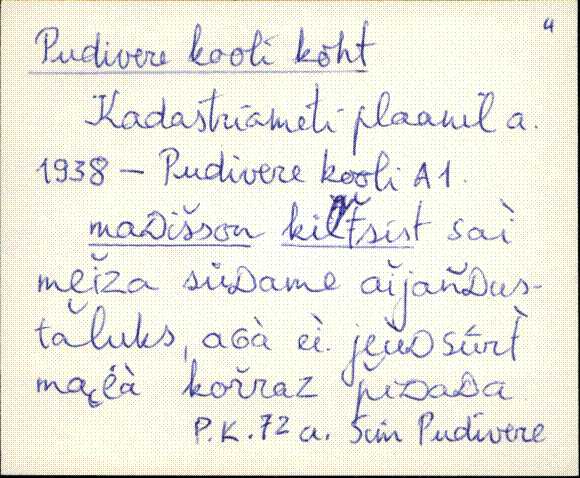 4
Pudivere kooli koht
Kadastriameti plaanil a.
1938 – Pudivere kooli A 1.
maDišson sai
mĕĭza süDame aĭjaňDus-
tăluks, aGà ei. jĕùD sūrt̀
kořraz
P.K. 72 a. Sim Pudivere